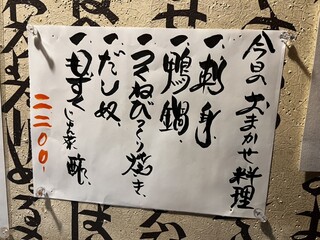 今日のおまかせ料理
一、刺身、
一、鴨鍋、
一、つくねびっくり焼き、
一、だし奴、
一、もずく 酢、
二二〇〇